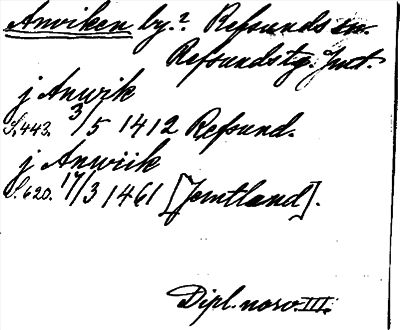 Anviken by.? Refsunds sn.
Refsundstg. Jmt.
j Anwik
S. 443. 3/5 1412 Refsund.
j Anwiik
S. 620. 17/3 1461 [Jemtland].
Dipl. norv. III.